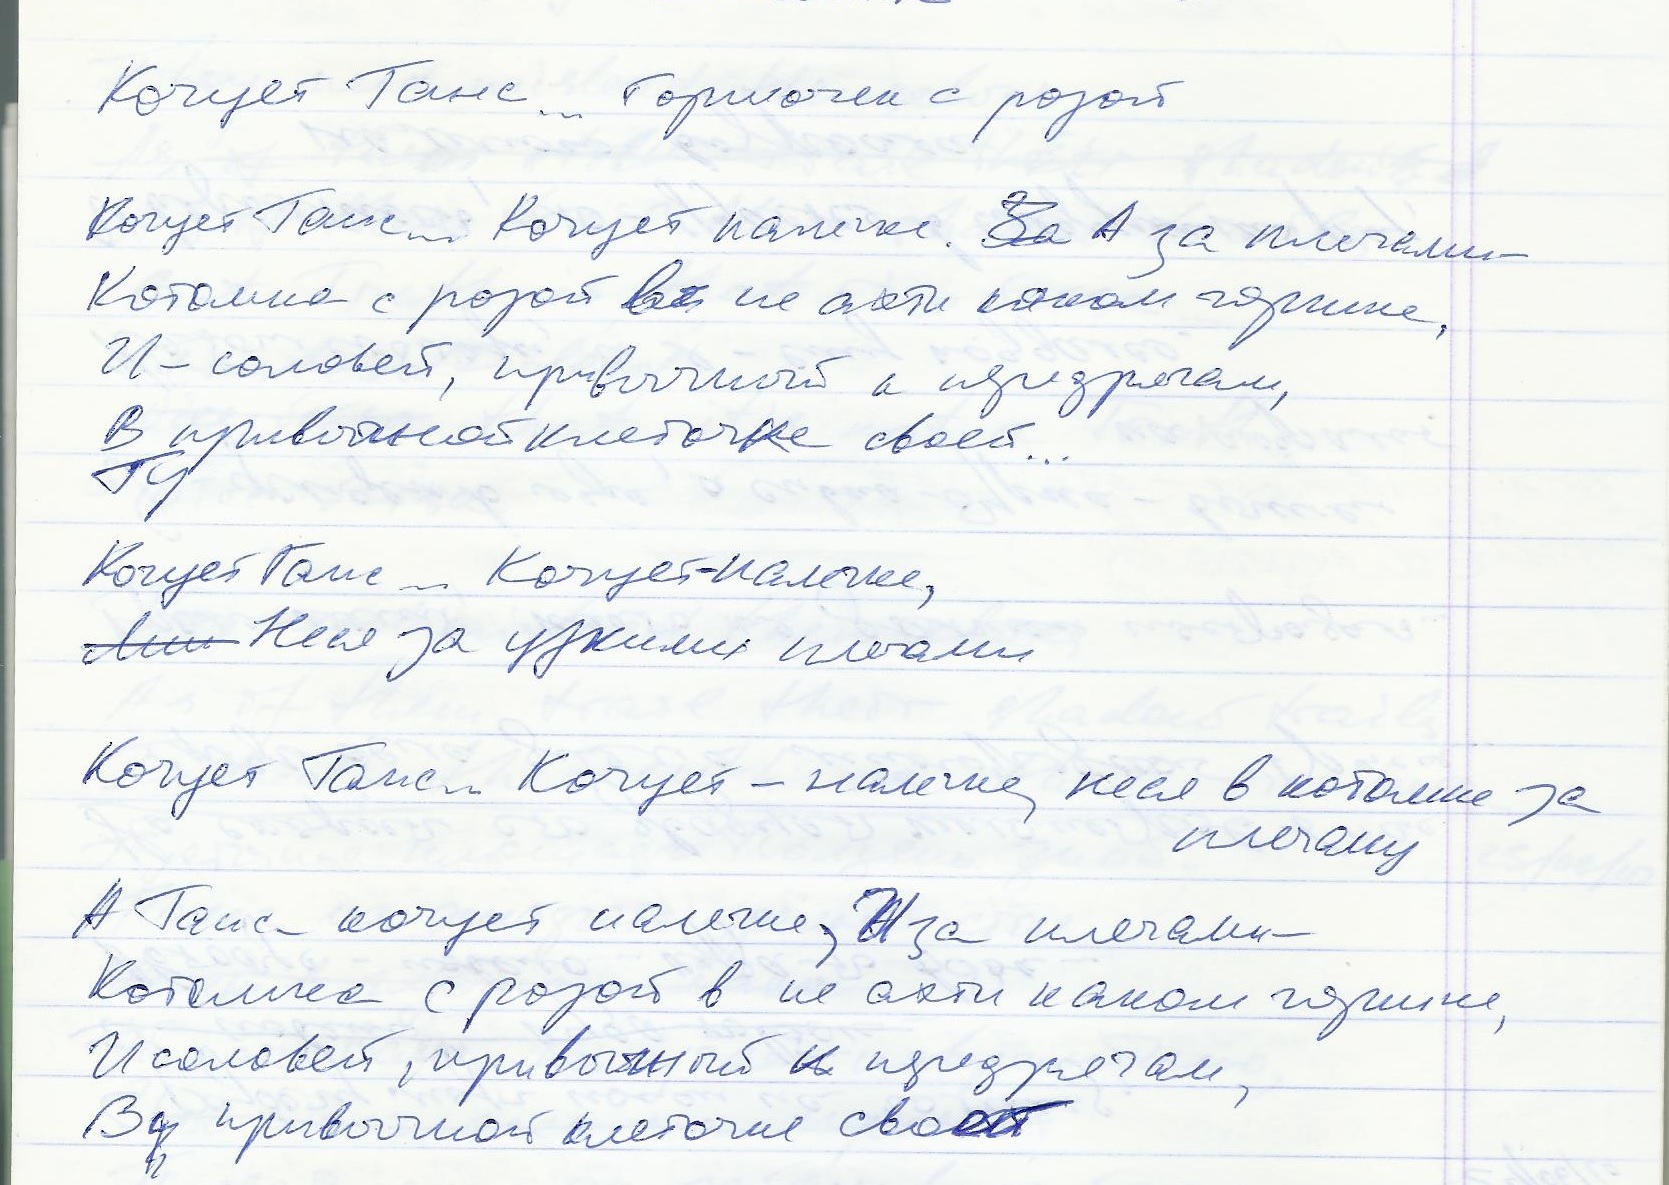 Кочует Ганс... Горшочек с розой
Кочует Ганс... Кочует налегке. За А за плечами –
Котомка с розой в не ахти каком горшке,
И – соловей, привычный к передрягам,
В привычной клеточке своей...
Кочует Ганс... Кочует налегке,
Неся за узкими плечами
Кочует Ганс... Кочует – налегке, неся в котомке за
плечами
А Ганс кочует налегке, за плечами –
Котомка с розой в не ахти каком горшке,
И соловей, привычный к передрягам,
В привычной клеточке своей